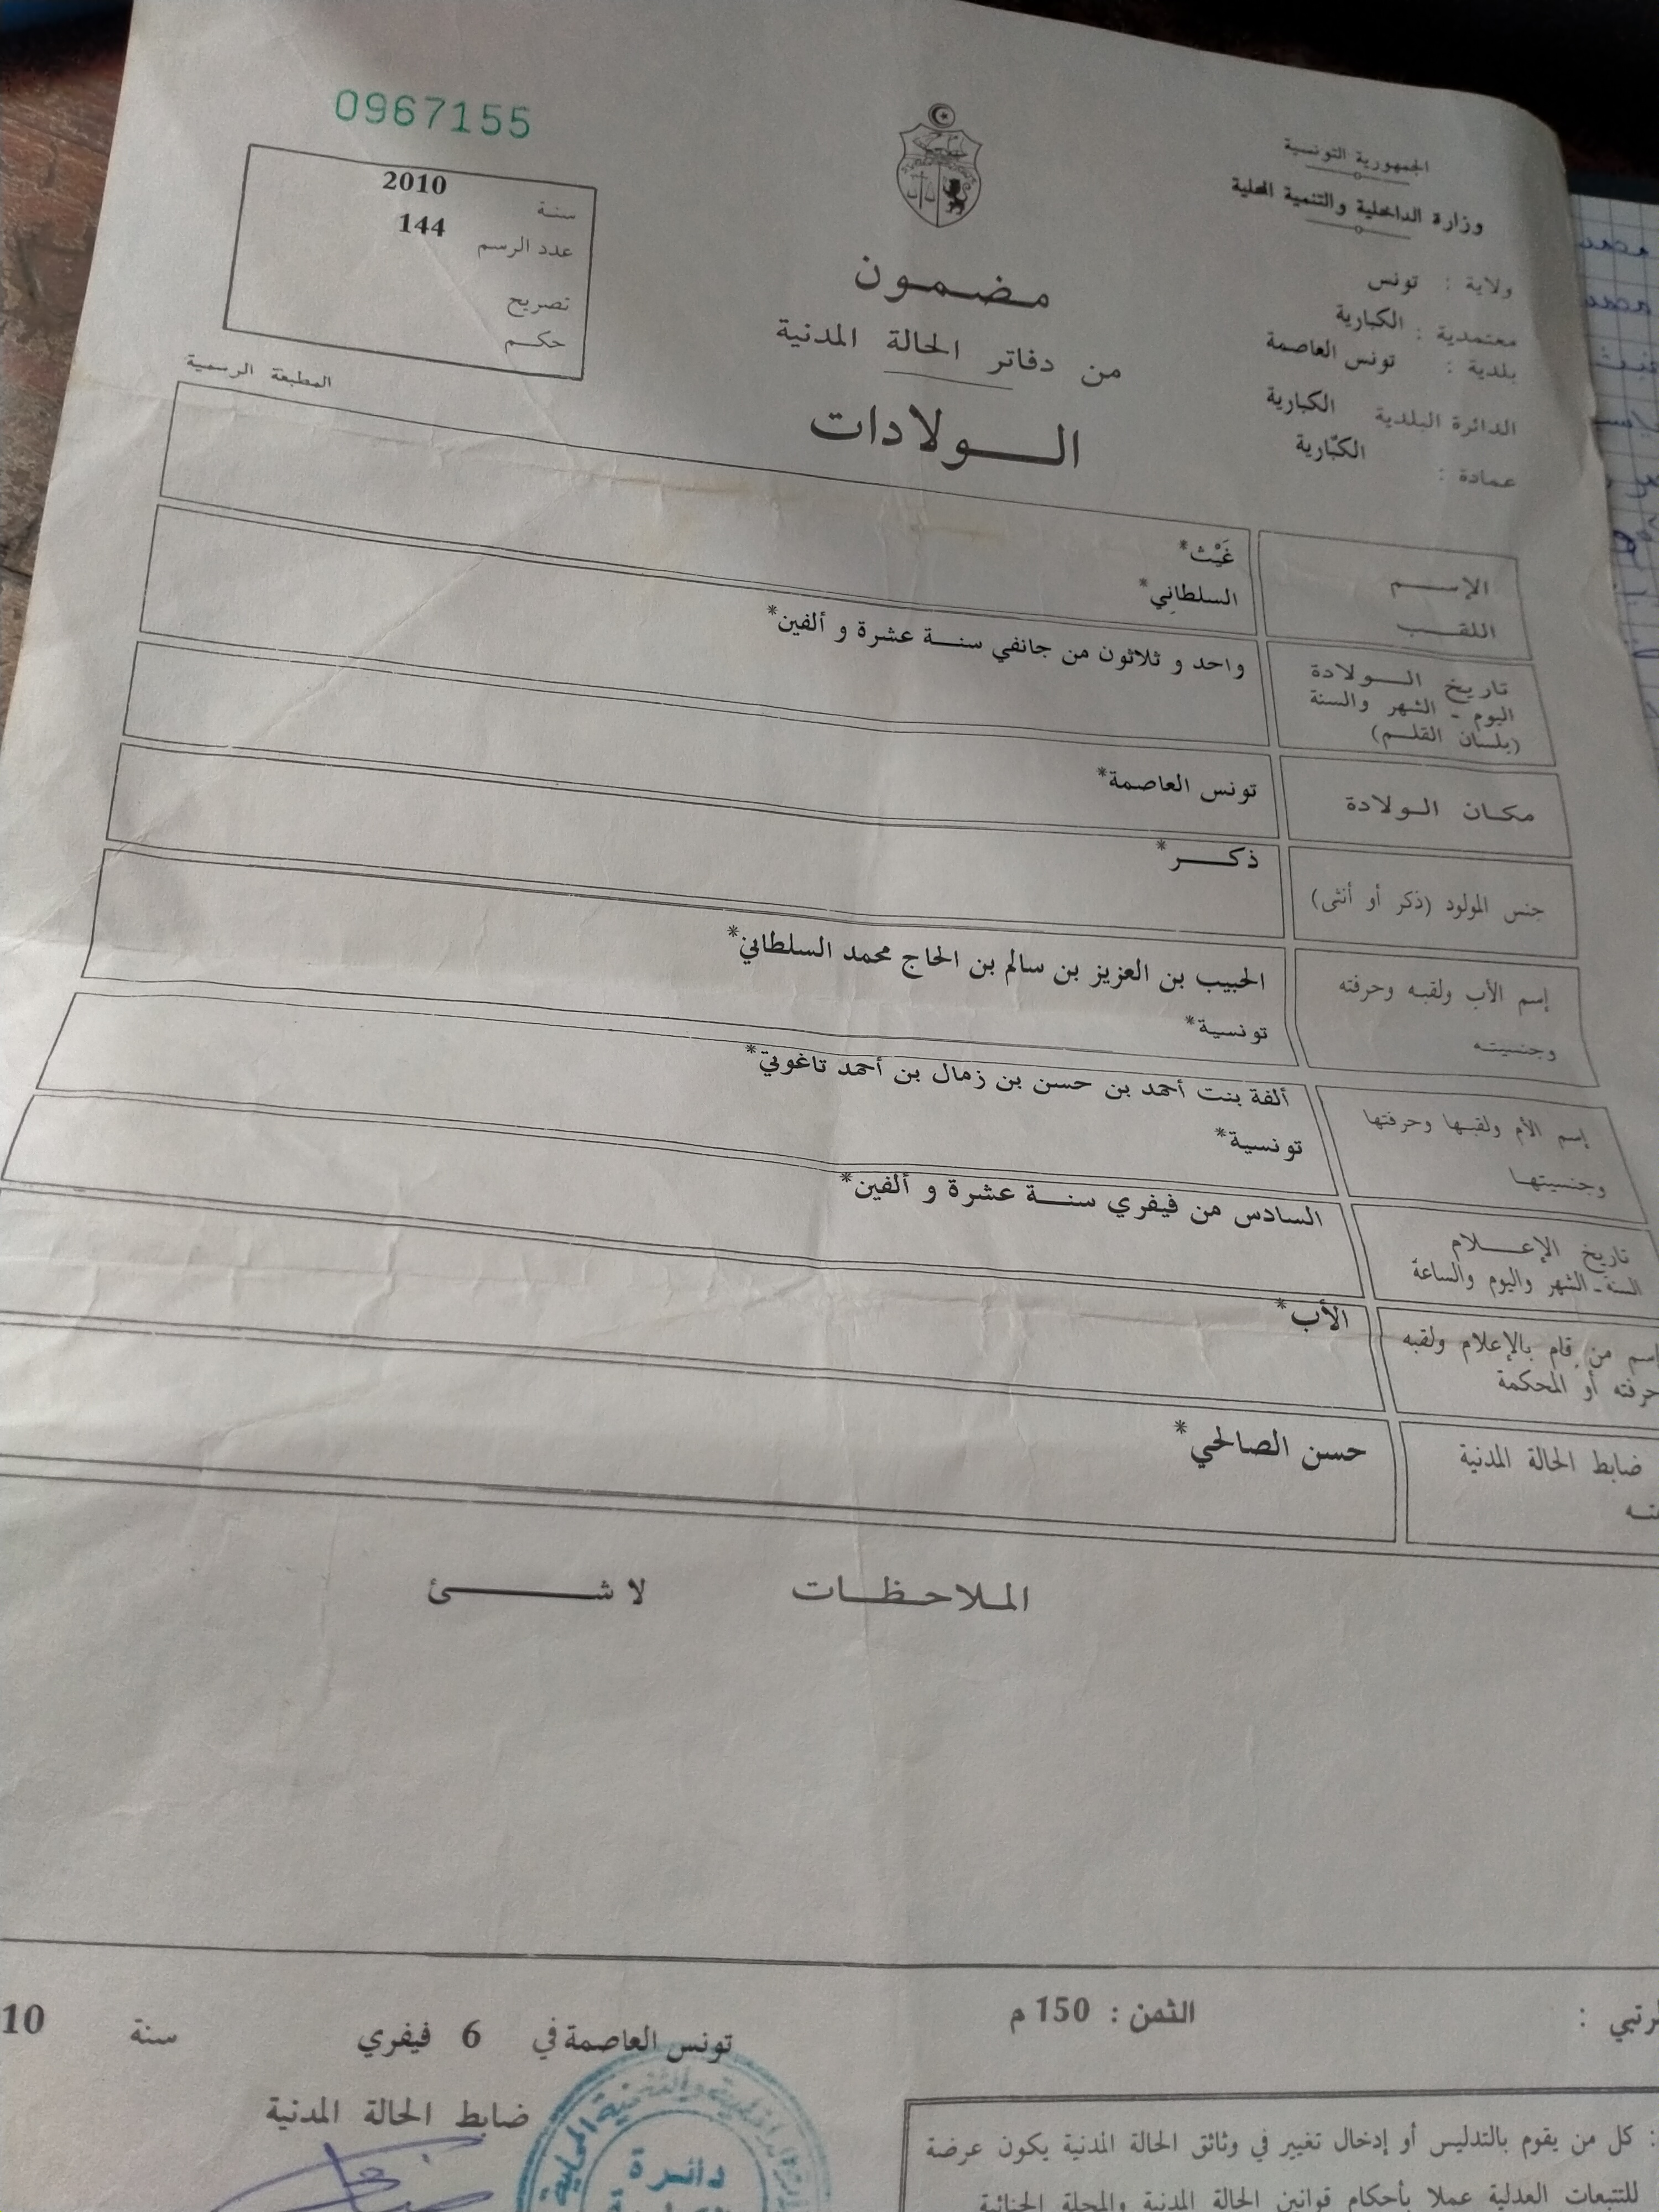 0967155
سنة 2010
عدد الرسم 144
تصريح
حكم
المطبعة الرسمية
الجمهورية التونسية
وزارة الداخلية والتنمية المحلية
ولاية : تونس
معتمدية : الكبارية
بلدية : تونس العاصمة
الدائرة البلدية الكبارية
عمادة : الكبّارية
مضمون
من دفاتر الحالة المدنية
الولادات
الإسم غَيْث*
اللقب السلطاني*
تاريخ الولادة واحد و ثلاثون من جانفي سنة عشرة و ألفين*
اليوم - الشهر والسنة
(بلسان القلم)
مكان الولادة تونس العاصمة*
جنس المولود (ذكر أو أنثى) ذكر*
إسم الأب ولقبه وحرفته الحبيب بن العزيز بن سالم بن الحاج محمد السلطاني*
وجنسيته تونسية*
إسم الأم ولقبها وحرفتها ألفة بنت أحمد بن حسن بن زمال بن أحمد تاغوتي*
وجنسيتها تونسية*
تاريخ الإعلام السادس من فيفري سنة عشرة و ألفين*
السنة - الشهر واليوم والساعة
إسم من قام بالإعلام ولقبه الأب*
حرفته أو المحكمة
ضابط الحالة المدنية حسن الصالحي*
الملاحظات لا شئ
الثمن : 150 م
تونس العاصمة في 6 فيفري سنة 10
ضابط الحالة المدنية
دائرة
: كل من يقوم بالتدليس أو إدخال تغيير في وثائق الحالة المدنية يكون عرضة
للتتبعات العدلية عملا بأحكام قوانين الحالة المدنية والمجلة الجنائية